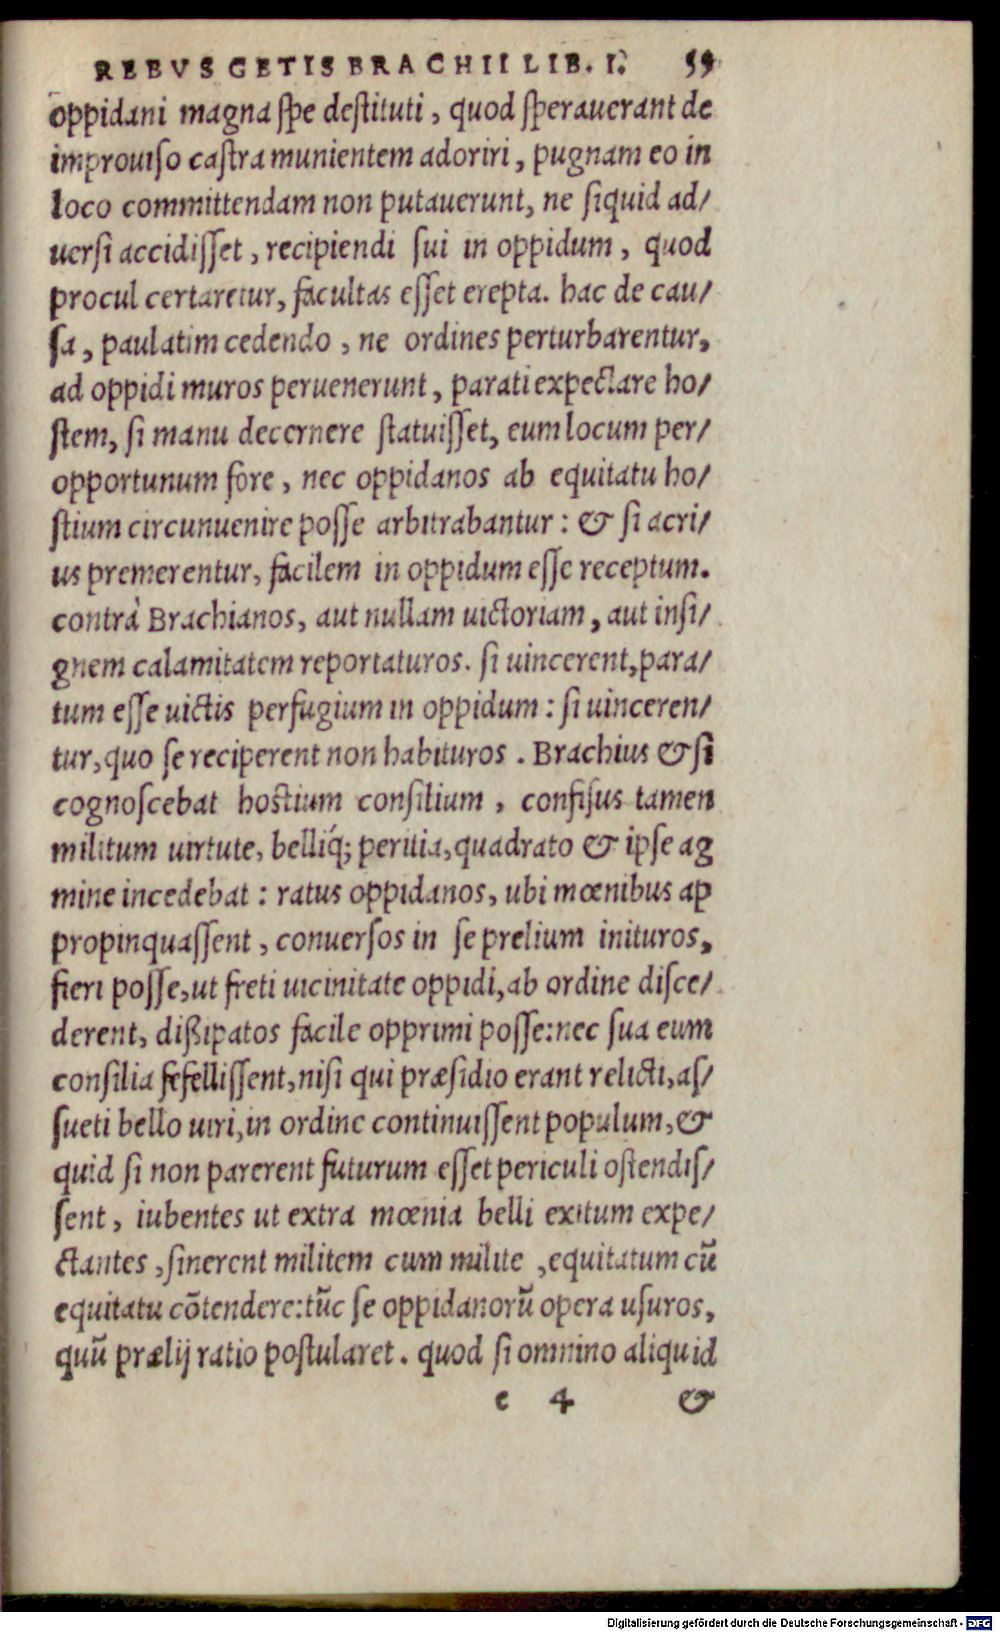 REBVS GETIS BRACHII LIB. I. 55
oppidani magna ſpe deſtituti, quod ſperauerant de
improuiſo caſtra munientem adoriri, pugnam eo in
loco committendam non putauerunt, ne ſiquid ad/
uerſi accidiſſet, recipiendi ſui in oppidum, quod
procul certaretur, facultas eſſet erepta. hac de cau/
ſa, paulatim cedendo, ne ordines perturbarentur,
ad oppidi muros peruenerunt, parati expectare ho/
ſtem, ſi manu decernere ſtatuiſſet, eum locum per/
opportunum fore, nec oppidanos ab equitatu ho/
ſtium circunuenire poſſe arbitrabantur: & ſi acri/
us premerentur, facilem in oppidum eſſe receptum.
contrà Brachianos, aut nullam uictoriam, aut inſi/
gnem calamitatem reportaturos. ſi uincerent, para/
tum eſſe uictis perfugium in oppidum: ſi uinceren/
tur, quo ſe reciperent non habituros. Brachius & ſi
cognoſcebat hostium conſilium, confiſus tamen
militum uirtute, belliq́; peritia, quadrato & ipſe ag
mine incedebat: ratus oppidanos, ubi mœnibus ap
propinquaſſent, conuerſos in ſe prelium inituros,
fieri poſſe, ut freti uicinitate oppidi, ab ordine diſce/
derent, dißipatos facile opprimi poſſe: nec ſua eum
conſilia fefelliſſent, niſi qui præſidio erant relicti, aſ/
ſueti bello uiri, in ordine continuiſſent populum, &
quid ſi non parerent futurum eſſet periculi oſtendiſ/
ſent, iubentes ut extra mœnia belli exitum expe/
ctantes, ſinerent militem cum milite, equitatum cū
equitatu cōtendere: tūc ſe oppidanorū opera uſuros,
quū prælij ratio poſtularet. quod ſi omnino aliquid
e 4 &
Digitalisierung gefördert durch die Deutsche Forschungsgemeinschaft - DFG